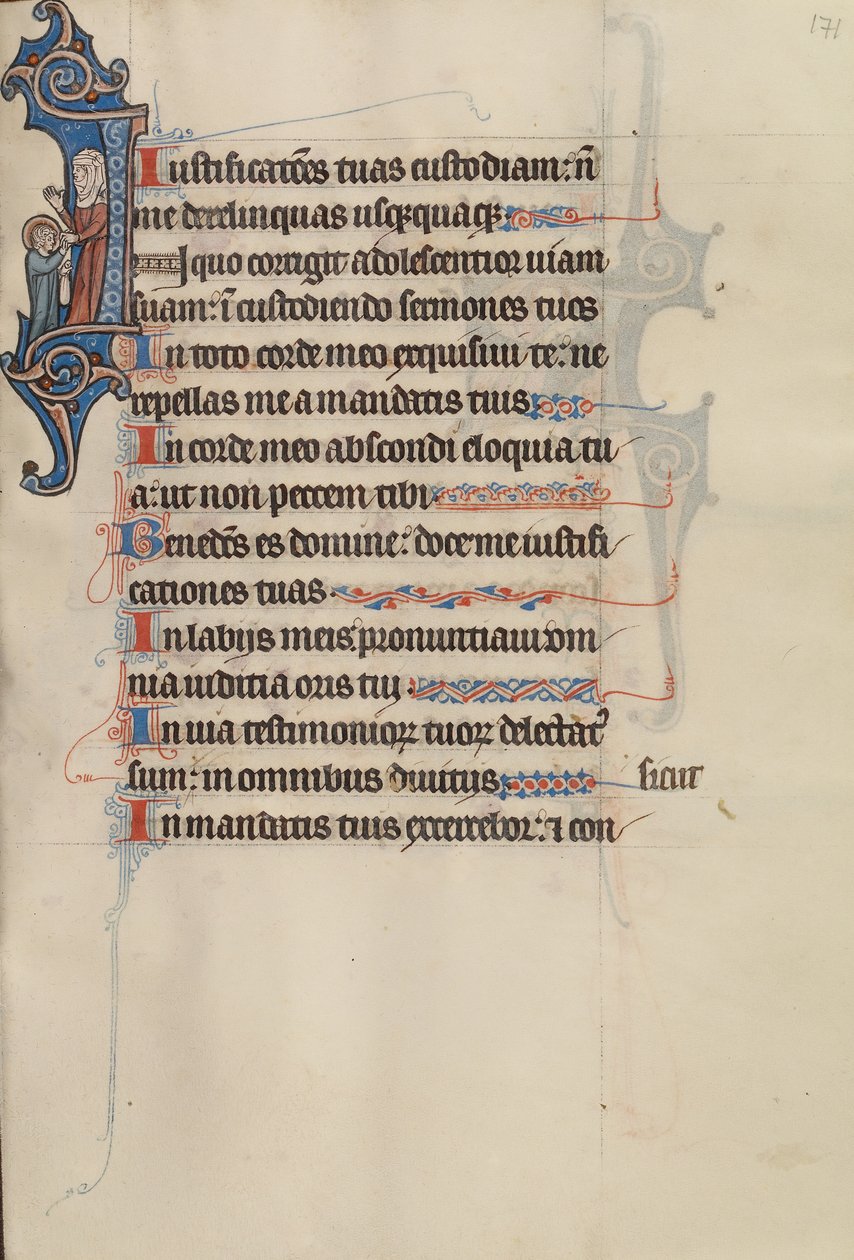 171
Iustificatōes tuas custodiam: n̄
me derelinquas usq̨quaq̨.
I quo corrigit adolescentior uiam
suam: ī custodiendo sermones tuos
In toto corde meo exquisiui te: ne
repellas me a mandatis tuis
In corde meo abscondi eloquia tu
a: ut non peccem tibi.
Benedc̄s es domine: doce me iustifi
cationes tuas.
In labijs meis: pronuntiaui om
nia iuditia oris tui.
In uia testimonioꝝ tuoꝝ delectatꝰ
sum: in omnibus diuitijs sicut
In mandatis tuis exercebor: ⁊ con